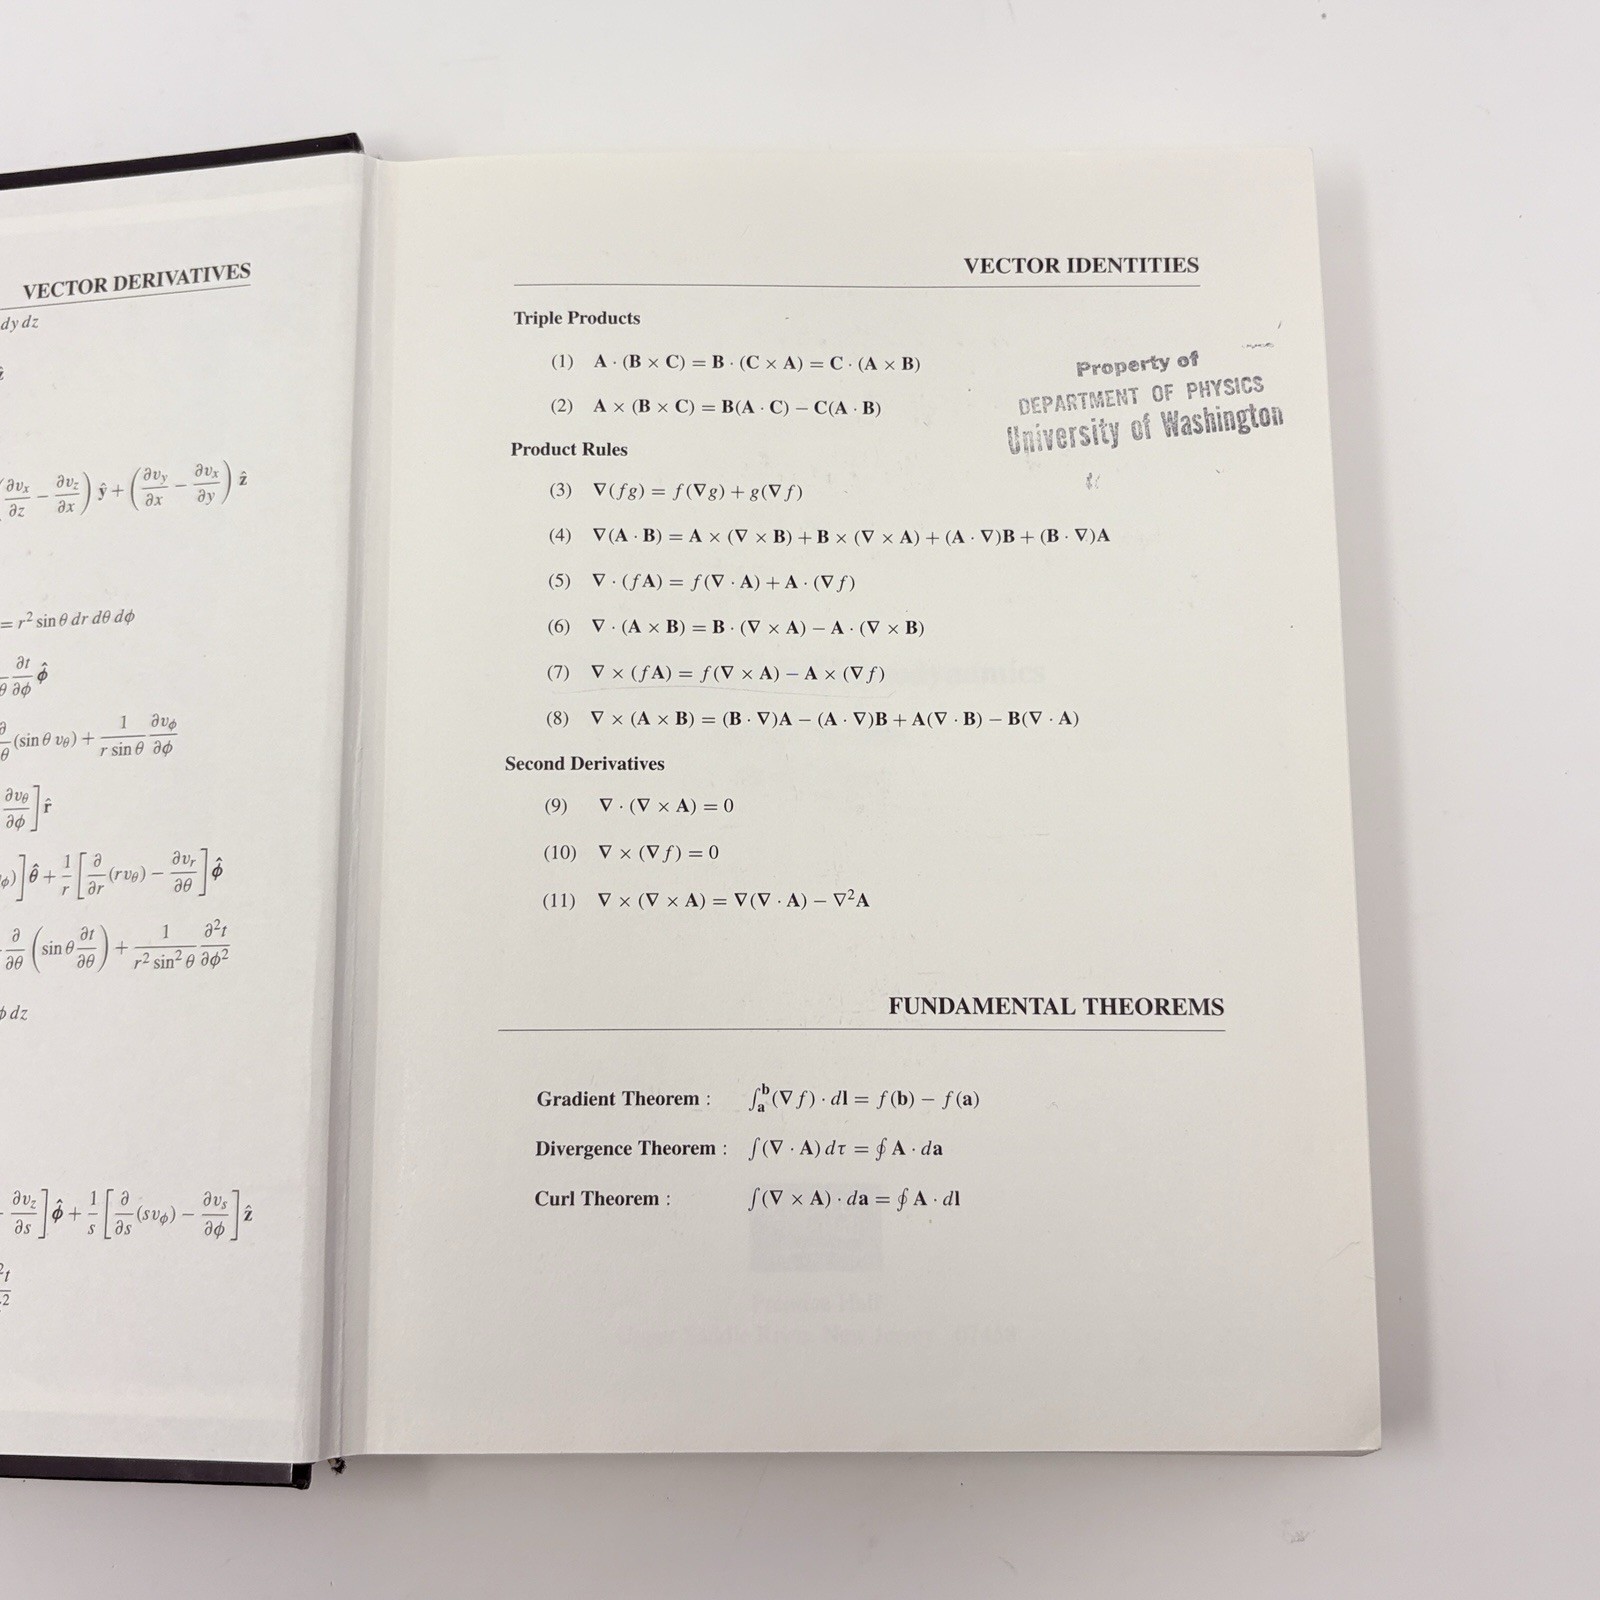 VECTOR DERIVATIVES
dy dz
ẑ
(∂vₓ/∂z − ∂v_z/∂x) ŷ + (∂v_y/∂x − ∂vₓ/∂y) ẑ
= r² sin θ dr dθ dϕ
∂t/∂ϕ ϕ̂
(sin θ v_θ) + 1/(r sin θ) ∂v_ϕ/∂ϕ
∂v_θ/∂ϕ] r̂
] θ̂ + 1/r [∂/∂r (rv_θ) − ∂v_r/∂θ] ϕ̂
∂/∂θ (sin θ ∂t/∂θ) + 1/(r² sin² θ) ∂²t/∂ϕ²
ϕ dz
∂v_z/∂s] ϕ̂ + 1/s [∂/∂s (sv_ϕ) − ∂v_s/∂ϕ] ẑ
VECTOR IDENTITIES
Triple Products
(1) A · (B × C) = B · (C × A) = C · (A × B)
(2) A × (B × C) = B(A · C) − C(A · B)
Property of
DEPARTMENT OF PHYSICS
University of Washington
Product Rules
(3) ∇(fg) = f(∇g) + g(∇f)
(4) ∇(A · B) = A × (∇ × B) + B × (∇ × A) + (A · ∇)B + (B · ∇)A
(5) ∇ · (fA) = f(∇ · A) + A · (∇f)
(6) ∇ · (A × B) = B · (∇ × A) − A · (∇ × B)
(7) ∇ × (fA) = f(∇ × A) − A × (∇f)
(8) ∇ × (A × B) = (B · ∇)A − (A · ∇)B + A(∇ · B) − B(∇ · A)
Second Derivatives
(9) ∇ · (∇ × A) = 0
(10) ∇ × (∇f) = 0
(11) ∇ × (∇ × A) = ∇(∇ · A) − ∇²A
FUNDAMENTAL THEOREMS
Gradient Theorem : ∫ₐᵇ(∇f) · dl = f(b) − f(a)
Divergence Theorem : ∫(∇ · A) dτ = ∮ A · da
Curl Theorem : ∫(∇ × A) · da = ∮ A · dl